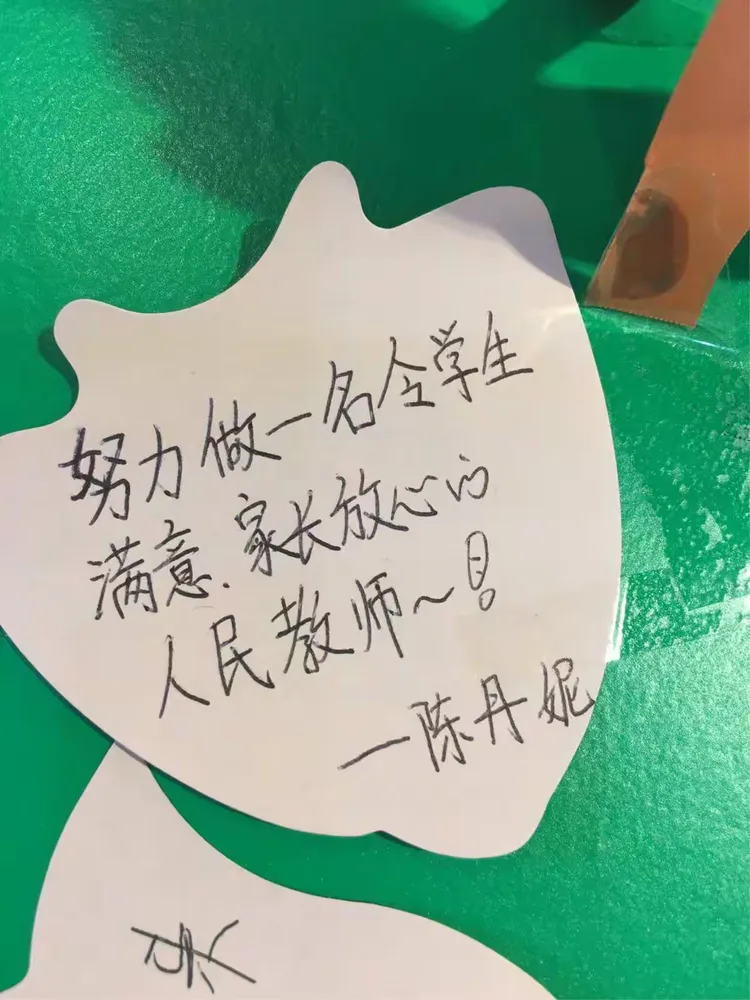 努力做一名令学生
满意、家长放心的
人民教师~!
—陈丹妮